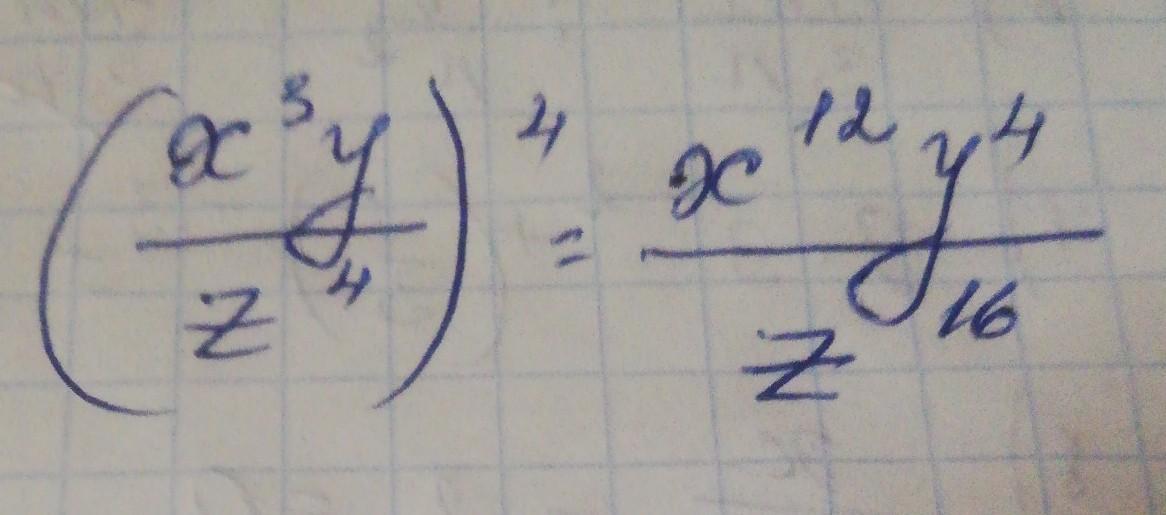 (x³y / z⁴)⁴ = x¹²y⁴ / z¹⁶